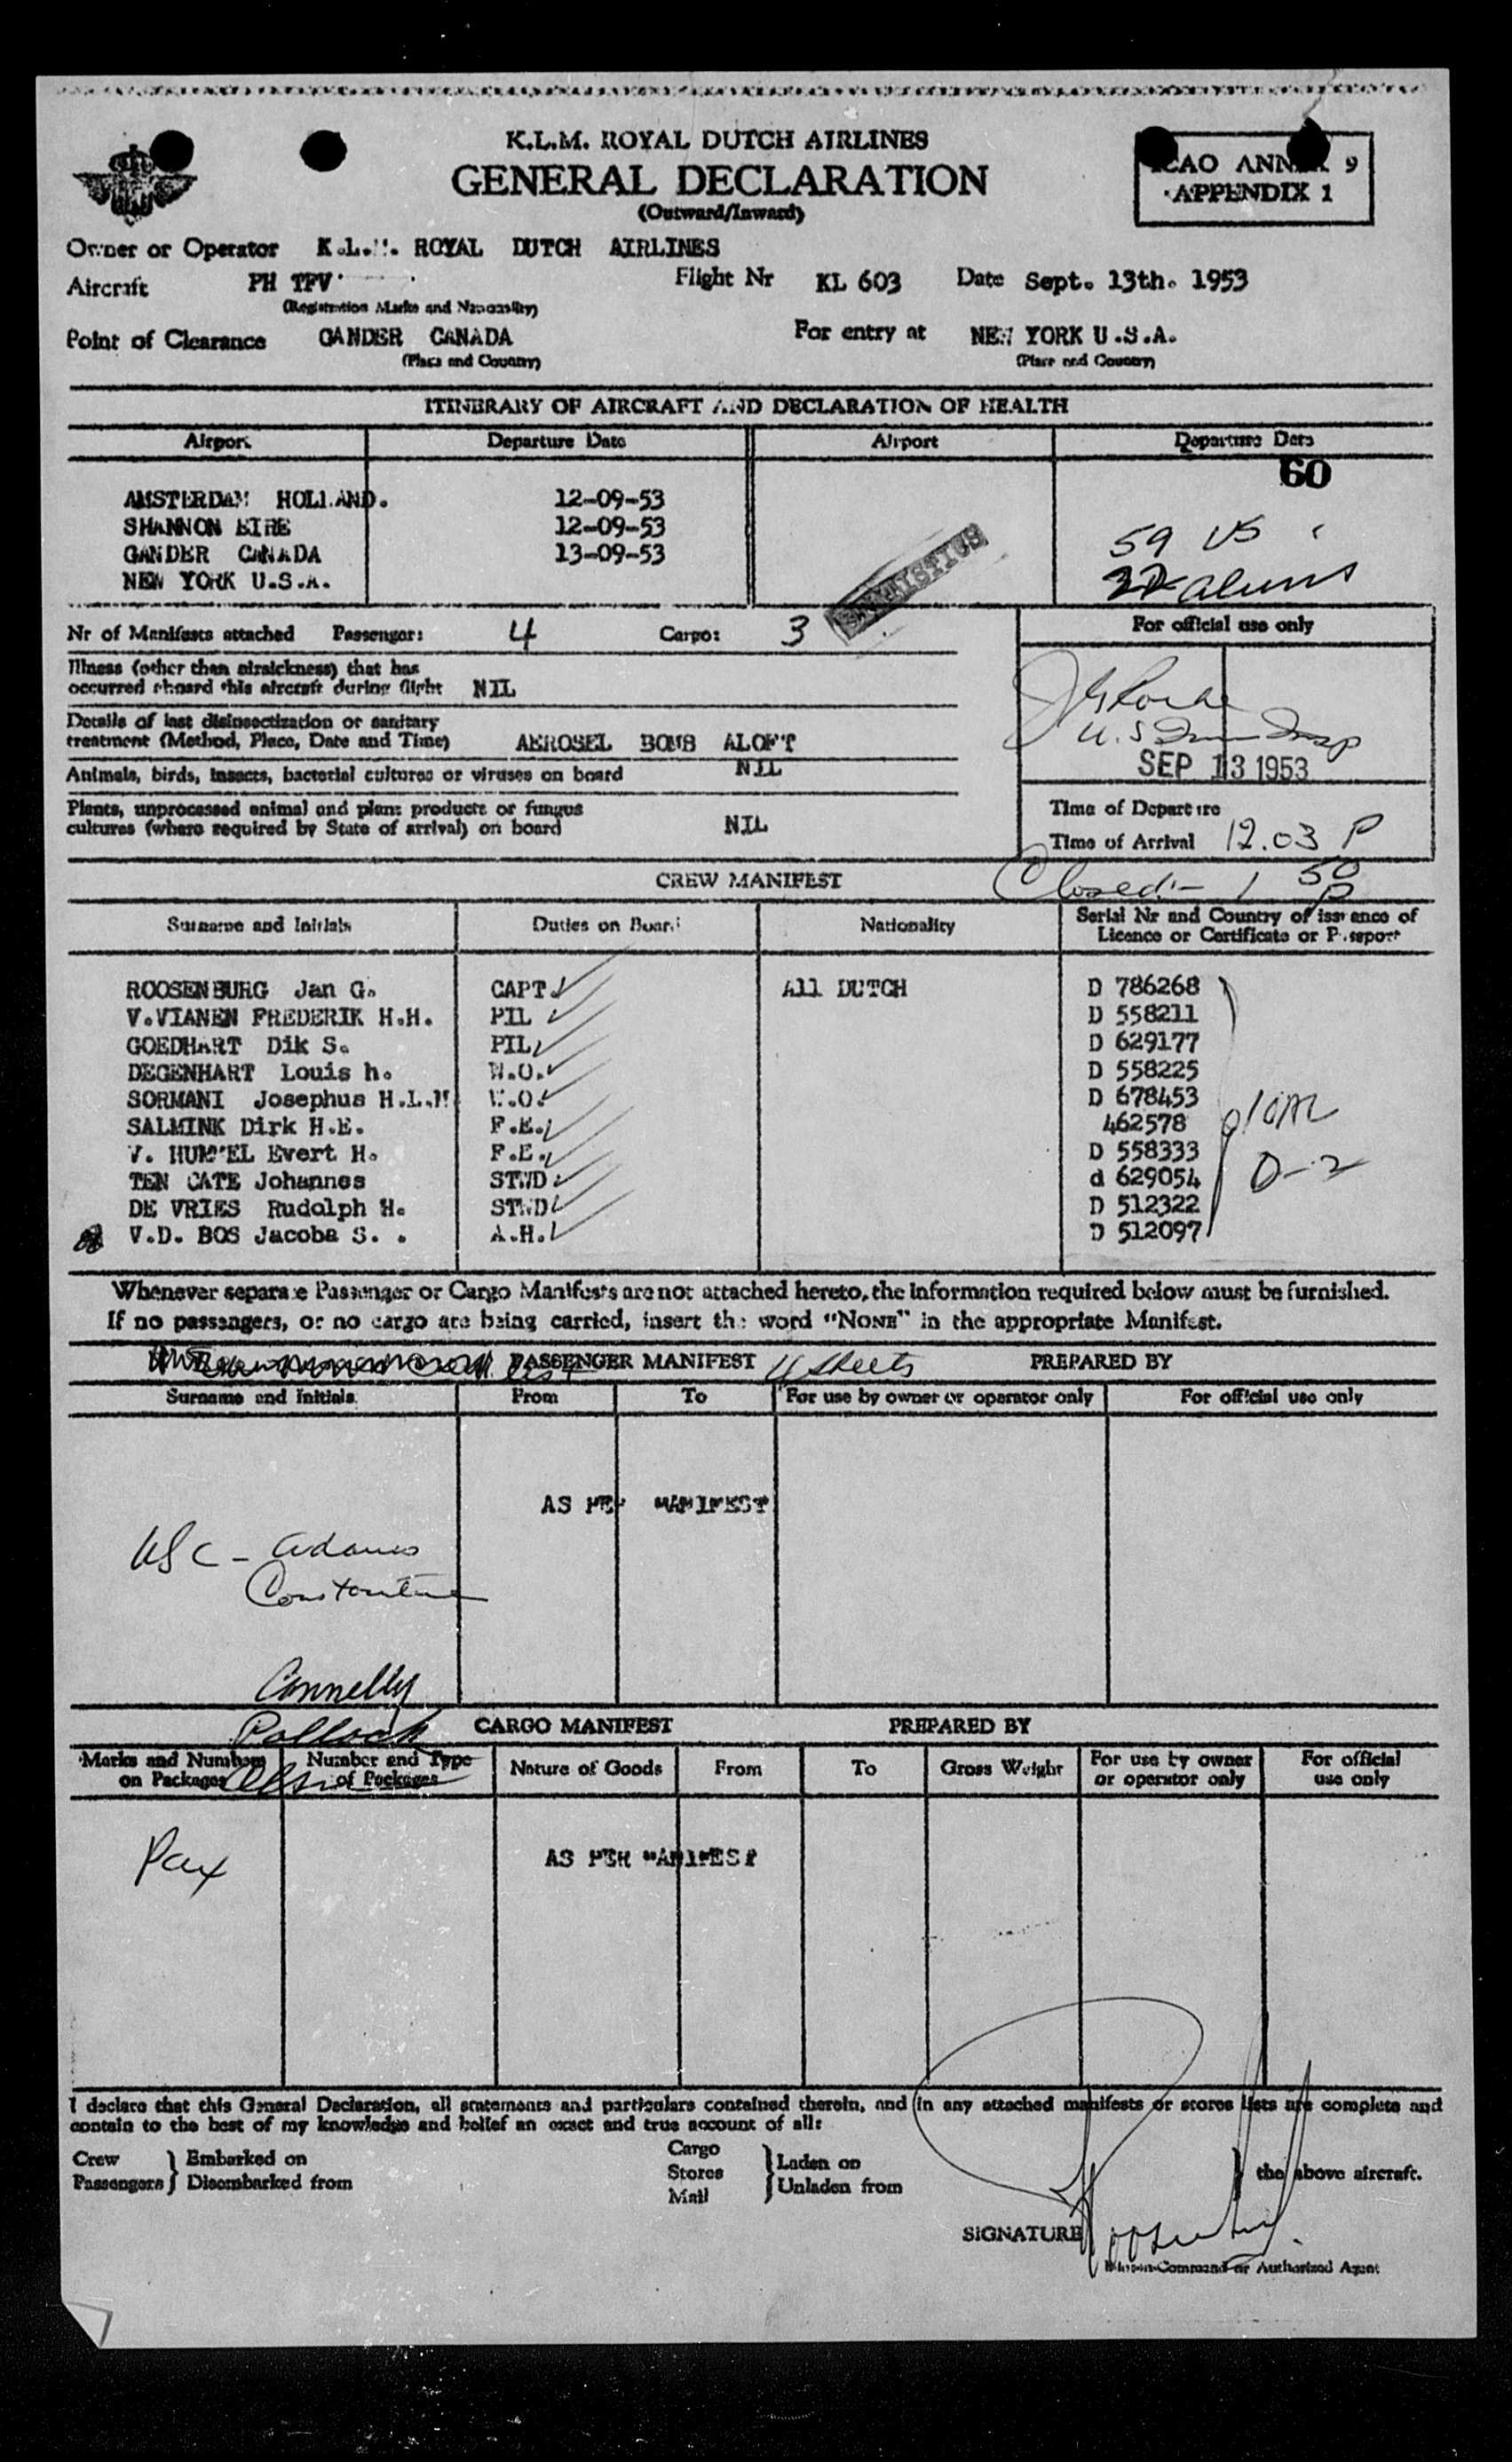 K.L.M. ROYAL DUTCH AIRLINES
GENERAL DECLARATION
(Outward/Inward)
ICAO ANNEX 9
APPENDIX 1
Owner or Operator K.L.M. ROYAL DUTCH AIRLINES
Aircraft PH TPV Flight Nr KL 603 Date Sept. 13th. 1953
(Registration Marks and Nationality)
Point of Clearance GANDER CANADA For entry at NEW YORK U.S.A.
(Place and Country) (Place and Country)
ITINERARY OF AIRCRAFT AND DECLARATION OF HEALTH
Airport Departure Date Airport Departure Date
60
AMSTERDAM HOLLAND. 12-09-53
SHANNON EIRE 12-09-53
GANDER CANADA 13-09-53
NEW YORK U.S.A.
59 US
aliens
STATISTICS
Nr of Manifests attached Passenger: 4 Cargo: 3
For official use only
Illness (other than airsickness) that has
occurred aboard this aircraft during flight NIL
Details of last disinsectization or sanitary
treatment (Method, Place, Date and Time) AEROSEL BOMB ALOFT
Animals, birds, insects, bacterial cultures or viruses on board NIL
Plants, unprocessed animal and plant products or fungus
cultures (where required by State of arrival) on board NIL
U.S. Imm Insp
SEP 13 1953
Time of Departure
Time of Arrival 12.03 P
Closed:- 1 50 P
CREW MANIFEST
Surname and Initials Duties on Board Nationality Serial Nr and Country of issuance of
Licence or Certificate or Passport
ROOSENBURG Jan G. CAPT All DUTCH D 786268
V.VIANEN FREDERIK H.H. PIL D 558211
GOEDHART Dik S. PIL D 629177
DEGENHART Louis h. W.O. D 558225
SORMANI Josephus H.L.M. W.O. D 678453
SALMINK Dirk H.E. F.E. 462578
V. HUMMEL Evert H. F.E. D 558333
TEN CATE Johannes STWD d 629054
DE VRIES Rudolph H. STWD D 512322
V.D. BOS Jacoba S. . A.H. D 512097
D-2
Whenever separate Passenger or Cargo Manifests are not attached hereto, the information required below must be furnished.
If no passengers, or no cargo are being carried, insert the word "NONE" in the appropriate Manifest.
PASSENGER MANIFEST 4 sheets PREPARED BY
Surname and Initials From To For use by owner or operator only For official use only
AS PER MANIFEST
USC - Adams
Constantine
Connelly
Pollock
CARGO MANIFEST PREPARED BY
Marks and Numbers on Packages Number and Type of Packages Nature of Goods From To Gross Weight For use by owner or operator only For official use only
Pax
AS PER MANIFEST
I declare that this General Declaration, all statements and particulars contained therein, and in any attached manifests or stores lists are complete and
contain to the best of my knowledge and belief an exact and true account of all:
Crew Embarked on Cargo Laden on
Passengers Disembarked from Stores Unladen from the above aircraft.
Mail
SIGNATURE
Pilot-in-Command or Authorized Agent